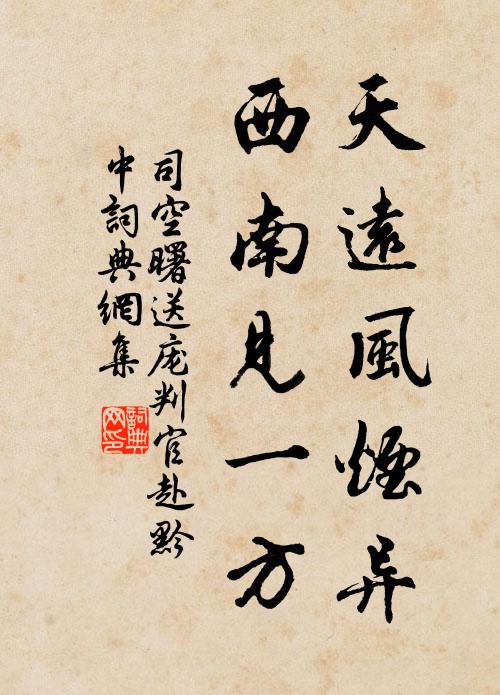 天遠風煙异
西南見一方
司空曙送庞判官赴黔
中詞典網集
詞典网印